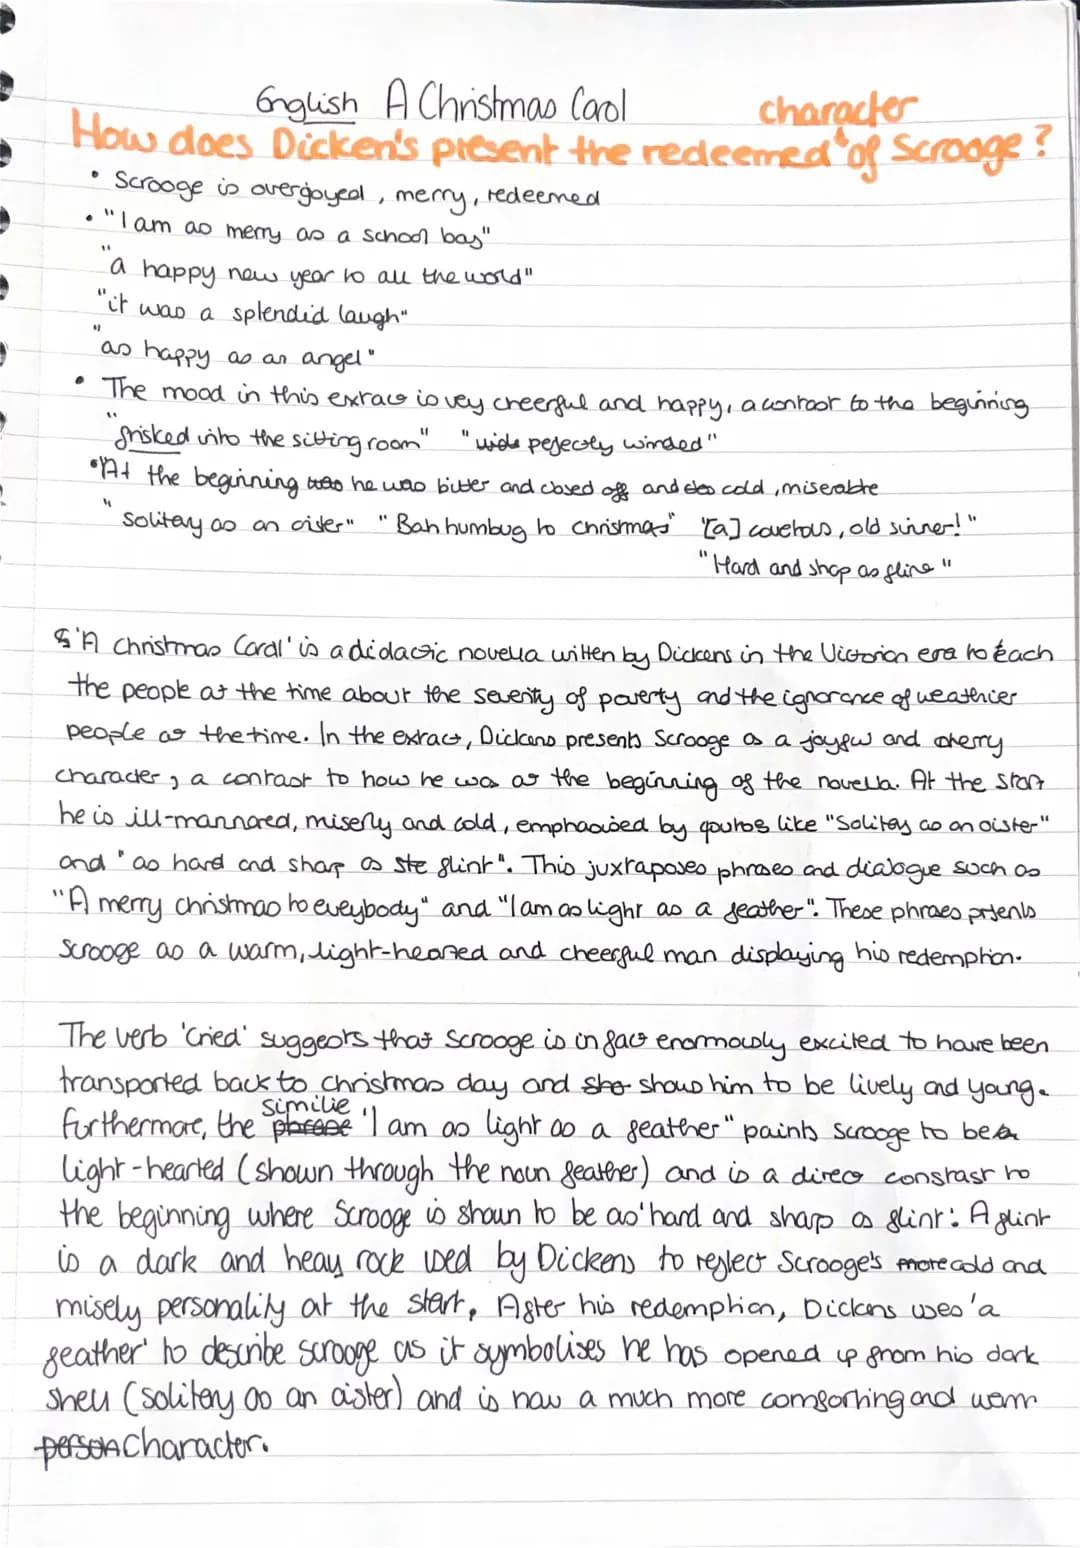 English A Christmas Carol
character
How does Dicken's present the redeemed of Scrooge?
• Scrooge is overjoyed, merry, redeemed
• "I am as merry as a school boy"
"a happy new year to all the world"
"it was a splendid laugh"
"as happy as an angel"
• The mood in this extract is very cheerful and happy, a contrast to the beginning
"frisked into the sitting room" "wide pefectly winded"
• At the beginning was he was bitter and closed off and also cold, miserable
"Solitary as an oister" "Bah humbug to christmas" "[a] covetous, old sinner!"
"Hard and sharp as flint"
'A Christmas Carol' is a didactic novella written by Dickens in the Victorian era to teach
the people at the time about the severity of poverty and the ignorance of wealthier
people at the time. In the extract, Dickens presents Scrooge as a joyful and merry
character, a contrast to how he was at the beginning of the novella. At the start
he is ill-mannored, miserly and cold, emphasised by quotes like "Solitary as an oister"
and "as hard and sharp as flint". This juxtaposes phrases and dialogue such as
"A merry christmas to eveybody" and "I am as light as a feather". These phraes prsents
Scrooge as a warm, light-hearted and cheerful man displaying his redemption.
The verb 'cried' suggests that Scrooge is in fact enormously excited to have been
transported back to christmas day and shows him to be lively and young.
Furthermore, the phrase similie "I am as light as a feather" paints Scrooge to be a
light-hearted (shown through the noun feather) and is a direct constrast to
the beginning where Scrooge is shown to be as 'hard and sharp as flint'. A flint
is a dark and heavy rock used by Dickens to reflect Scrooge's more cold and
misely personality at the start. After his redemption, Dickens uses 'a
feather' to describe scrooge as it symbolises he has opened up from his dark
shell (solitary as an oister) and is now a much more comforting and warm
person character.